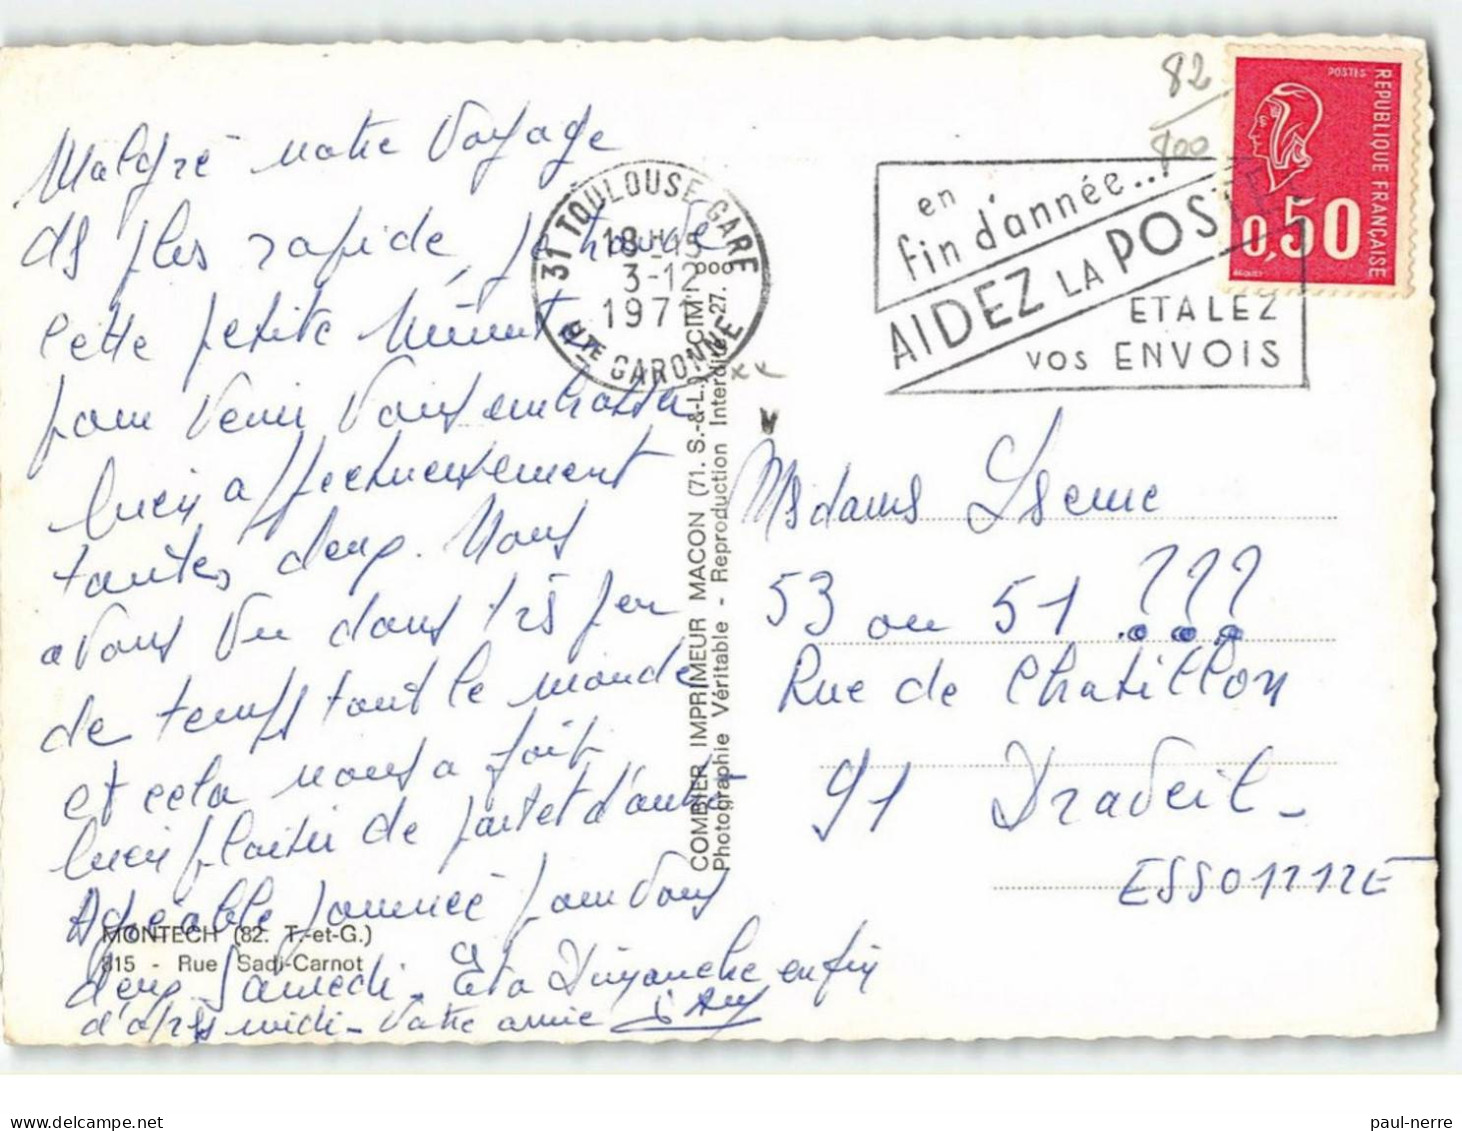 Malgré notre Voyage
ds plus rapide, je trouve
cette petite minute
pour venir vous embrasser
bien affectueusement
toutes deux. Nous
avons vu dans très peu
de temps tout le monde
et cela nous a fait
bien plaisir de part et d'autre
Agréable journée pour vous
deux Samedi. Et à Dimanche en fin
d'après midi - Votre amie
MONTECH (82. T.-et-G.)
815 - Rue Sadi-Carnot
31 TOULOUSE-GARE
18 H 15
3-12
1971
HTE GARONNE
COMBIER IMPRIMEUR MACON (71. S.-&-L.) CIM
Photographie Véritable - Reproduction Interdite
82
800
en
fin d'année...
AIDEZ LA POSTE
ETALEZ
VOS ENVOIS
POSTES
REPUBLIQUE FRANÇAISE
0,50
BEQUET
Madame
53 ou 51 ???
Rue de Chatillon
91 Draveil -
ESSONNE
paul-nerre